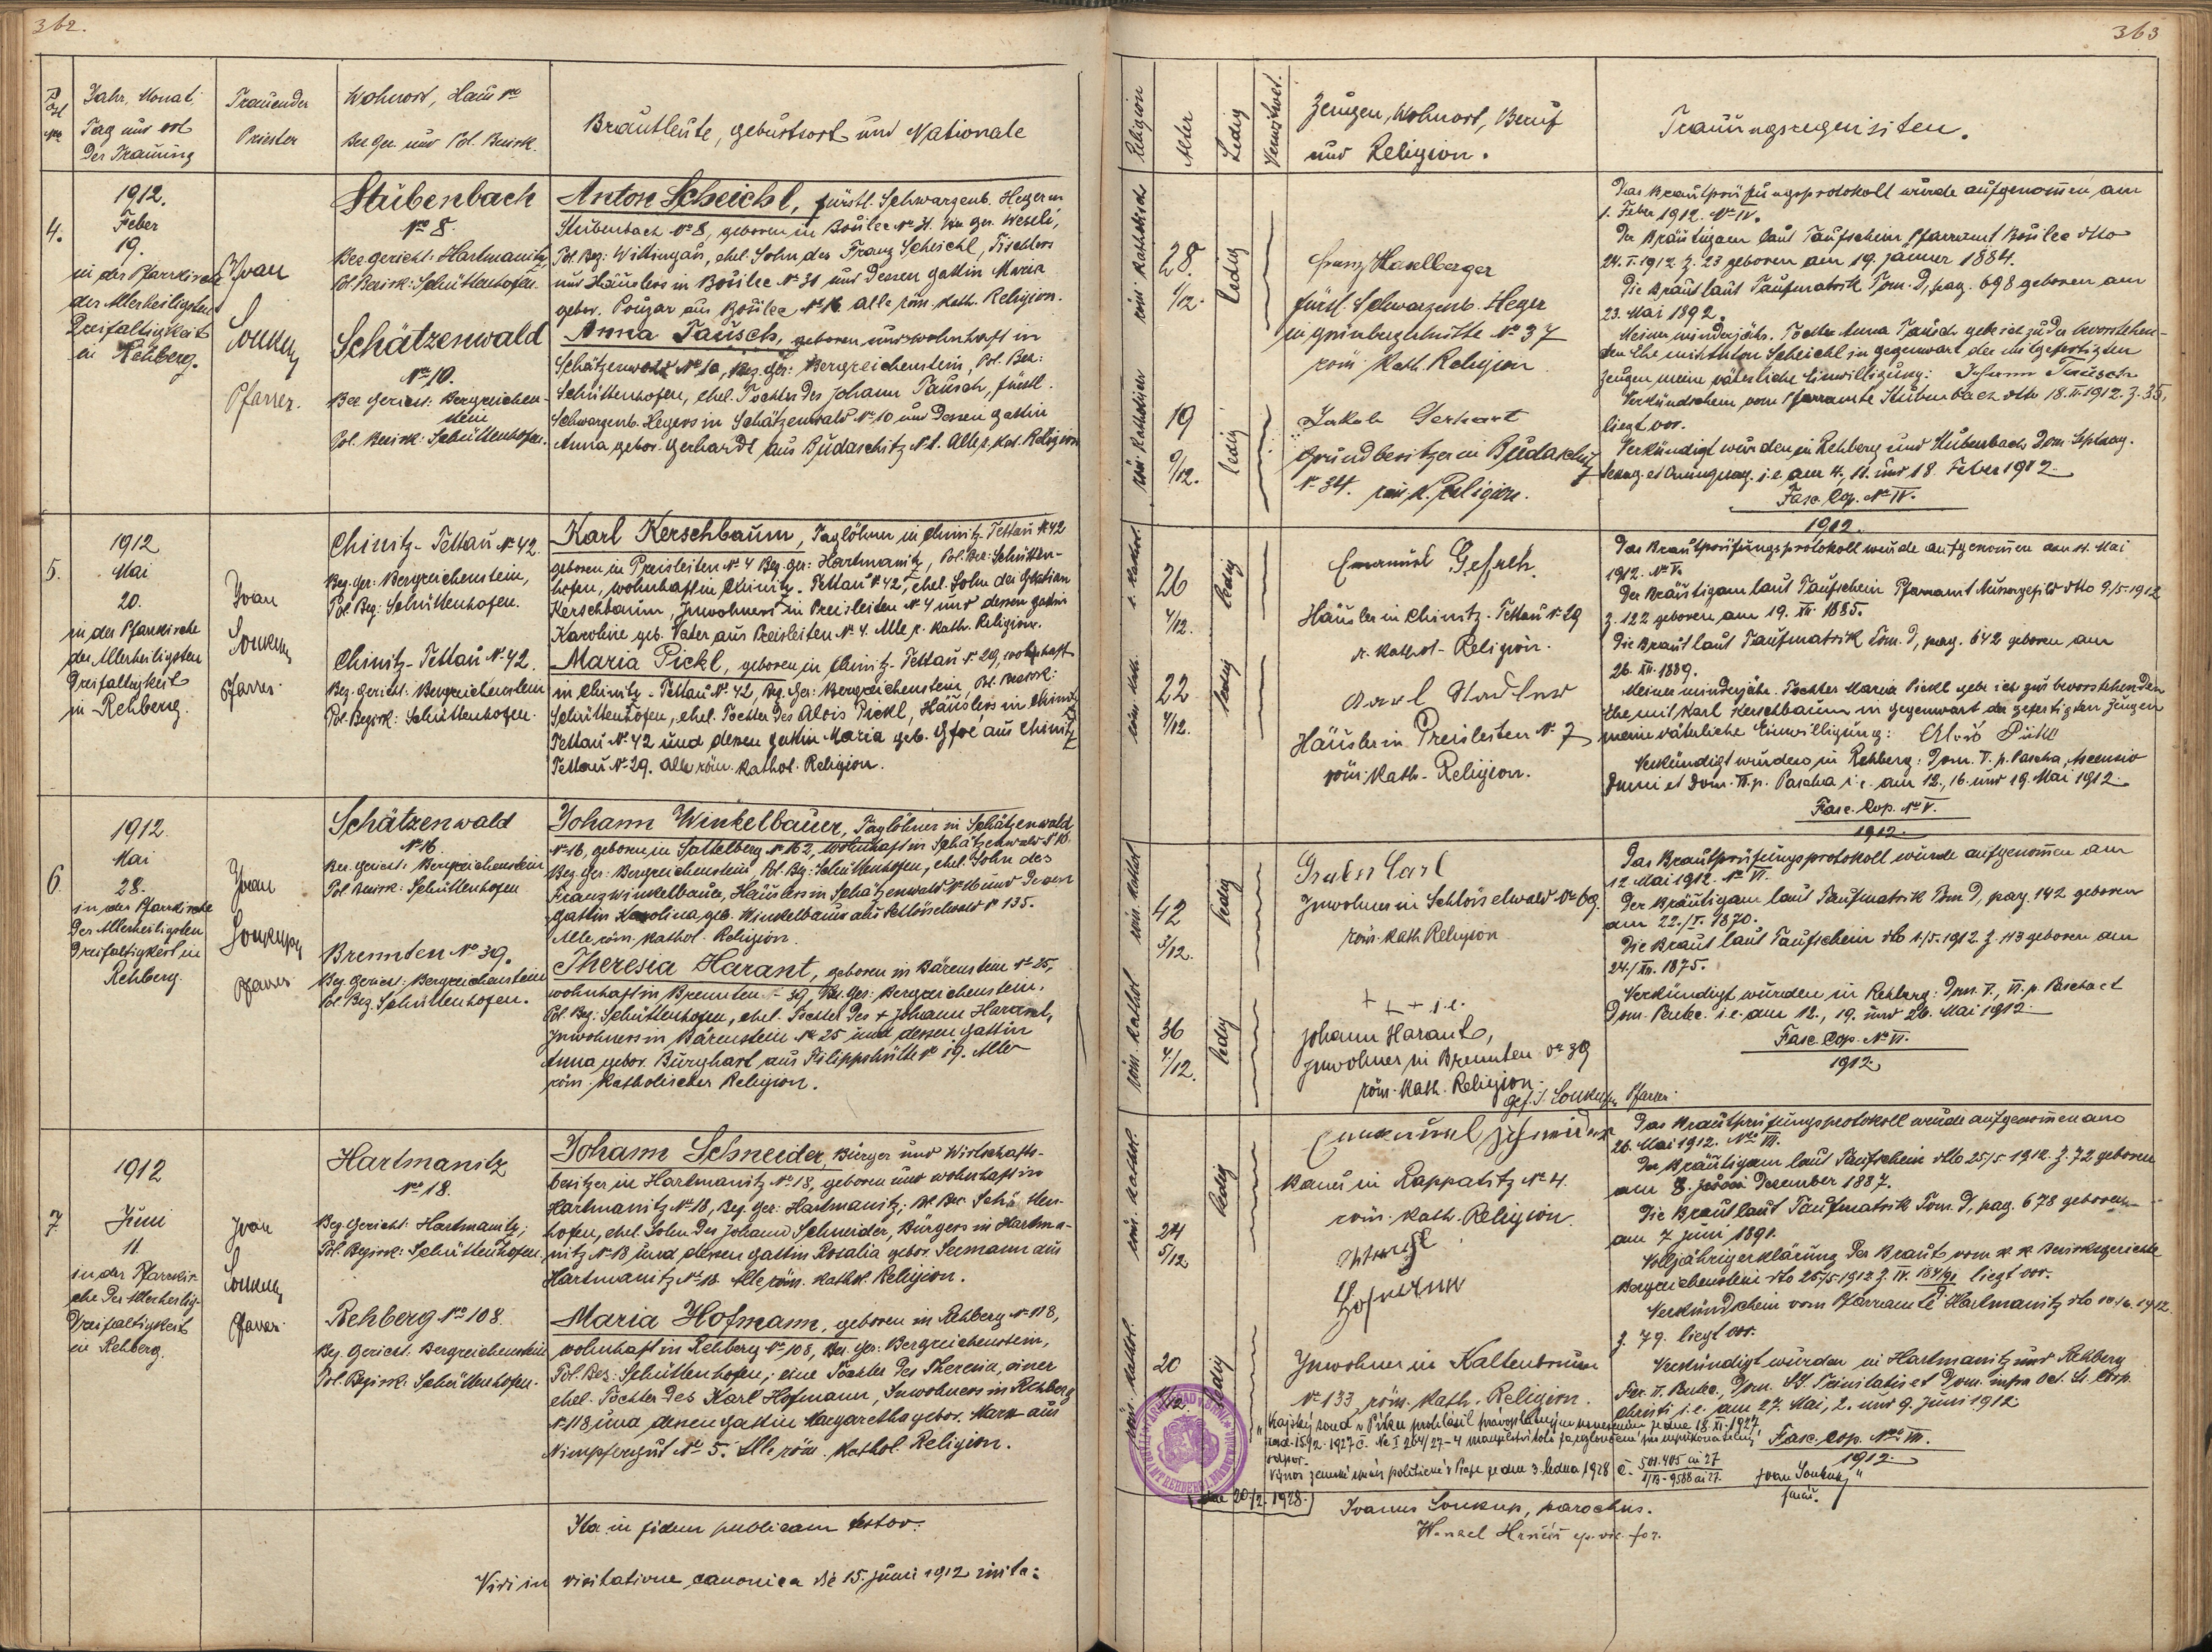 362.
Post
Nro
Jahr, Monat,
Tag und ort
Der Trauung
Trauender
Priester
Wohnort, Haus No
Bez Ger. und Pol. Bezirk.
Brautleute, geburtsort und Nationale
4.
1912.
Feber
19.
in der Pfarrkirche
der Allerheiligsten
Dreifaltigkeit
in Rehberg.
Ivan
Soukup
Pfarrer.
Stubenbach
No 8.
Bez gericht: Hartmanitz
Pol Bezirk: Schüttenhofen.
Schätzenwald
No 10.
Bez. Gericht: Bergreichen-
stein
Pol. Bezirk: Schüttenhofen.
Anton Scheichl, fürstl. Schwarzenb. Heger in
Stubenbach No 8, geboren in Bošilec No 31. Bez ger. Weseli,
Pol Bez: Wittingau, ehel. Sohn des Franz Scheichl, Tischlers
und Häuslers in Bošilec No 31 und dessen gattin Maria
gebor. Pouzar aus Bošilec No 16. alle röm. kath. Religion.
Anna Tausch, geboren und wohnhaft in
Schätzenwald No 10, Bez. ger: Bergreichenstein, Pol. Bez:
Schüttenhofen, ehel. Tochter des Johann Tausch, fürstl.
Schwarzenb. Hegers in Schätzenwald No 10 und dessen gattin
Anna gebor. Gerhardt aus Budaschitz N 1. Alle r. kat. Religion
5.
1912
Mai
20.
in der Pfarrkirche
der Allerheiligsten
Dreifaltigkeit
in Rehberg.
Ivan
Soukup
Pfarrer.
Chinitz-Tettau No 42.
Bez. ger: Bergreichenstein,
Pol. Bez: Schüttenhofen.
Chinitz-Tettau No 42.
Bez. Gericht: Bergreichenstein
Pol. Bezirk: Schüttenhofen.
Karl Kerschbaum, Taglöhner in Chinitz-Tettau No 42
geboren in Preisleiten No 4 Bez. ger: Hartmanitz, Pol. Bez: Schütten-
hofen, wohnhaft in Chinitz-Tettau No 42, ehel. Sohn des
Kerschbaum, Inwohners in Preisleiten No 4 und dessen gattin
Karoline geb. Vater aus Preisleiten No 4. Alle r. kath. Religion.
Maria Pickl, geboren in Chinitz-Tettau No 29, wohnhaft
in Chinitz-Tettau No 42, Bez. Ger: Bergreichenstein, Pol. Bezirk:
Schüttenhofen, ehel. Tochter des Alois Pickl, Häuslers in Chinitz
Tettau No 42 und dessen gattin Maria geb. aus Chinitz
Tettau No 29. alle röm. kathol. Religion.
6
1912.
Mai
28.
in der Pfarrkirche
Der Allerheiligsten
Dreifaltigkeit in
Rehberg.
Ivan
Soukup
Pfarrer
Schätzenwald
No 16.
Bez. gericht: Bergreichenstein
Pol. Bezirk: Schüttenhofen
Brennten No 39.
Bez. Gericht: Bergreichenstein
Pol. Bez. Schüttenhofen.
Johann Winkelbauer, Taglöhner in Schätzenwald
No 16, geboren in Sattelberg No 162, wohnhaft in Schätzenwald No 16.
Bez. ger: Bergreichenstein, Pol. Bez: Schüttenhofen, ehel. Sohn des
Franz Winkelbauer, Häuslers in Schätzenwald No 16 und dessen
gattin Karolina geb. Winkelbauer aus Schlösselwald No 135.
Alle röm. kathol. Religion.
Theresia Harant, geboren in Bärenstein No 25,
wohnhaft in Brennten - 39, Bez. Ger: Bergreichenstein,
Pol. Bez: Schüttenhofen, ehel. Tochter des + Johann Harant,
Inwohners in Bärenstein No 25 und dessen gattin
Anna gebor. Burghart aus Filippshütte No 19. Alle
röm. katholischer Religion.
7
1912
Juni
11.
in der Pfarrkir-
che Der Allerheilig.
Dreifaltigkeit
in Rehberg.
Ivan
Soukup
Pfarrer.
Hartmanitz
No 18.
Bez. Gericht: Hartmanitz;
Pol. Bezirk: Schüttenhofen.
Rehberg No 108.
Bez. Gericht: Bergreichenstein
Pol. Bezirk: Schüttenhofen.
Johann Schneider, Bürger und Wirtschafts-
besitzer in Hartmanitz No 18, geboren und wohnhaft in
Hartmanitz No 18, Bez. Ger: Hartmanitz; Pol. Bez: Schütten-
hofen, ehel. Sohn des Johann Schneider, Bürgers in Hartma-
nitz No 18 und dessen gattin Rosalia gebor. Seemann aus
Hartmanitz No 18. Alle röm. kathol. Religion.
Maria Hofmann, geboren in Rehberg No 118,
wohnhaft in Rehberg No 108, Bez. Ger: Bergreichenstein,
Pol. Bez: Schüttenhofen, eine Tochter der Theresia, einer
ehel. Tochter des Karl Hofmann, Inwohners in Rehberg
No 118 und dessen gattin Margaretha gebor. Mark aus
Nimpfergut No 5. Alle röm. kathol. Religion.
Ita in fidem publicam testor:
Vidi in visitatione canonica de 15. juni 1912 inita:
363
Religion
Alter
Ledig
Verwitwet.
Zeugen, Wohnort, Beruf
und Religion.
Trauungsrequisiten.
röm. katholisch
28.
1/12.
ledig
röm. katholischer
19
9/12.
ledig
Franz Haselberger
fürstl. Schwarzenb. Heger
in Grünbergerhütte No 37
röm. kath. Religion
Jakob Gerhart
Grundbesitzer in Budaschitz
No 34. röm. k. Religion.
Das Brautprüfungsprotokoll wurde aufgenommen am
1. Feber 1912. No IV.
Der Bräutigam laut Taufschein Pfarramt Bošilec dtto
24. I. 1912 Z. 23 geboren am 19. jänner 1884.
Die Braut laut Taufmatrik Tom. D, pag. 698 geboren am
23. Mai 1892.
Meiner minderjähr. Tochter Anna Tausch gebe ich zu der bevorstehen-
den Ehe mit Anton Scheichl in gegenwart der mitgefertigten
Zeugen meine väterliche Einwilligung: Johann Tausch
Verkündschein vom Pfarramte Stubenbach dtto 18. II. 1912. Z. 35,
liegt vor.
Verkündigt wurden in Rehberg und Stubenbach Dom. Septuag.
Sexag. et Quinquag. i. e. am 4., 11. und 18. Feber 1912.
Fasc. Cop. No IV.
1912.
r. kathol.
26
4/12.
ledig
röm. kath.
22
4/12.
ledig
Emanuel
Häusler in Chinitz-Tettau No 29
r. kathol. Religion.
Karl Stadler
Häusler in Preisleiten No 7
röm. kath. Religion.
Das Brautprüfungsprotokoll wurde aufgenommen am 11. Mai
1912. No V.
Der Bräutigam laut Taufschein Pfarramt dtto 9./5. 1912
Z. 122 geboren am 19. XII. 1885.
Die Braut laut Taufmatrik Tom. D, pag. 642 geboren am
26. XII. 1889.
Meiner minderjähr. Tochter Maria Pickl gebe ich zur bevorstehenden
Ehe mit Karl Kerschbaum in gegenwart der gefertigten Zeugen
meine väterliche Einwilligung: Alois Pickl
Verkündigt wurden in Rehberg: Dom. V. p. Pascha, Ascensio
Domini et Dom. VI. p. Pascha i. e. am 12., 16. und 19. Mai 1912.
Fasc. Cop. No V.
1912.
röm. kathol.
42
3/12.
ledig
röm. kathol.
36
4/12.
ledig
Gruber Carl
Inwohner in Schlösselwald No 69.
röm. kath. Religion
+ + + i. e.
Johann Harant,
Inwohner in Brennten No 39
röm. kath. Religion.
gef. I. Soukup, Pfarrer.
Das Brautprüfungsprotokoll wurde aufgenommen am
12 Mai 1912. No VI.
Der Bräutigam laut Taufmatrik Tom D, pag. 142 geboren
am 22./I. 1870.
Die Braut laut Taufschein dto 1./5. 1912 Z. 113 geboren am
24./XII. 1875.
Verkündigt wurden in Rehberg: Dom. V., VI. p. Pascha et
Dom. Pentec. i. e. am 12., 19. und 26. Mai 1912.
Fasc. Cop. No VI.
1912
röm. kathol.
24
5/12
ledig
röm. kathol.
20
ledig
Emanuel Schneider
Bauer in Kappatitz No 4.
röm. kath. Religion.
Hofmann
Inwohner in Kaltenbrunn
No 133 röm. kath. Religion.
Das Brautprüfungsprotokoll wurde aufgenommen am
26. Mai 1912. No VII.
Der Bräutigam laut Taufschein dto 25/5 1912. Z. 72 geboren
am 8. Dezember 1887.
Die Braut laut Taufmatrik Tom. D, pag. 678 geboren
am 7 juni 1891.
Volljährigerklärung der Braut vom k. k. Bezirksgerichte
Bergreichenstein dto 25/5 1912 Z. liegt vor.
Verkündschein vom Pfarramte Hartmanitz dto 10./6. 1912.
Z. 79. liegt vor.
Verkündigt wurden in Hartmanitz und Rehberg
Fer. II. Pentec., Dom. SS. Trinitatis et Dom. infra Oct. SS. Corp.
Christi i. e. am 27. Mai, 2. und 9. juni 1912
Fasc. Cop. Nro VII.
1912.
"Krajský soud v Písku prohlásil pravoplatným usnesením ze dne 18. XI. 1927
1927 č. Nc I 264/27-4 manželství toto za rozloučené
Výnos zemské správy politické v Praze ze dne 3. ledna 1928 č.
dne 20/2. 1928.
Ivan Soukup"
farář.
Ivanus Soukup, parochus.
Wenzel